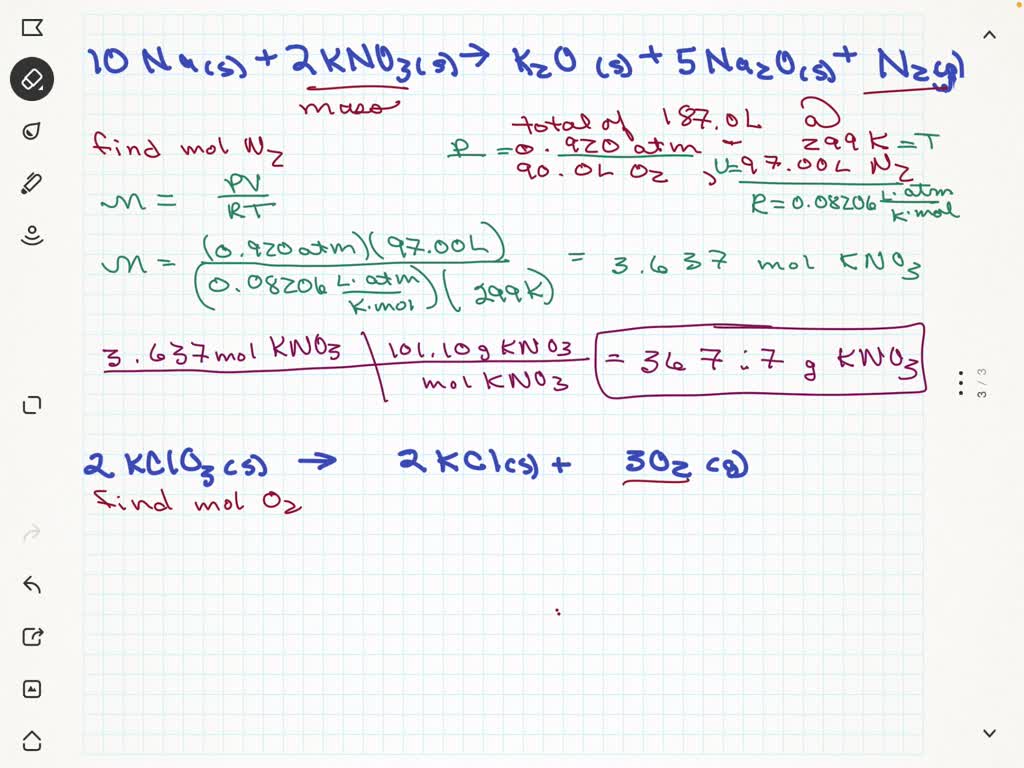 10 Na(s) + 2KNO3(s) → K2O (s) + 5Na2O(s) + N2(g)
mass
total of 187.0L @
find mol N2
P = 0.920 atm - 299K = T
90.0L O2 , V=97.00L N2
n = PV / RT
R = 0.08206 L·atm / K·mol
n = (0.920 atm)(97.00L) / (0.08206 L·atm / K·mol)(299K) = 3.637 mol KNO3
3.637 mol KNO3 | 101.10g KNO3 / mol KNO3 = 367.7 g KNO3
3 / 3
2 KClO3(s) → 2 KCl(s) + 3O2 (g)
find mol O2